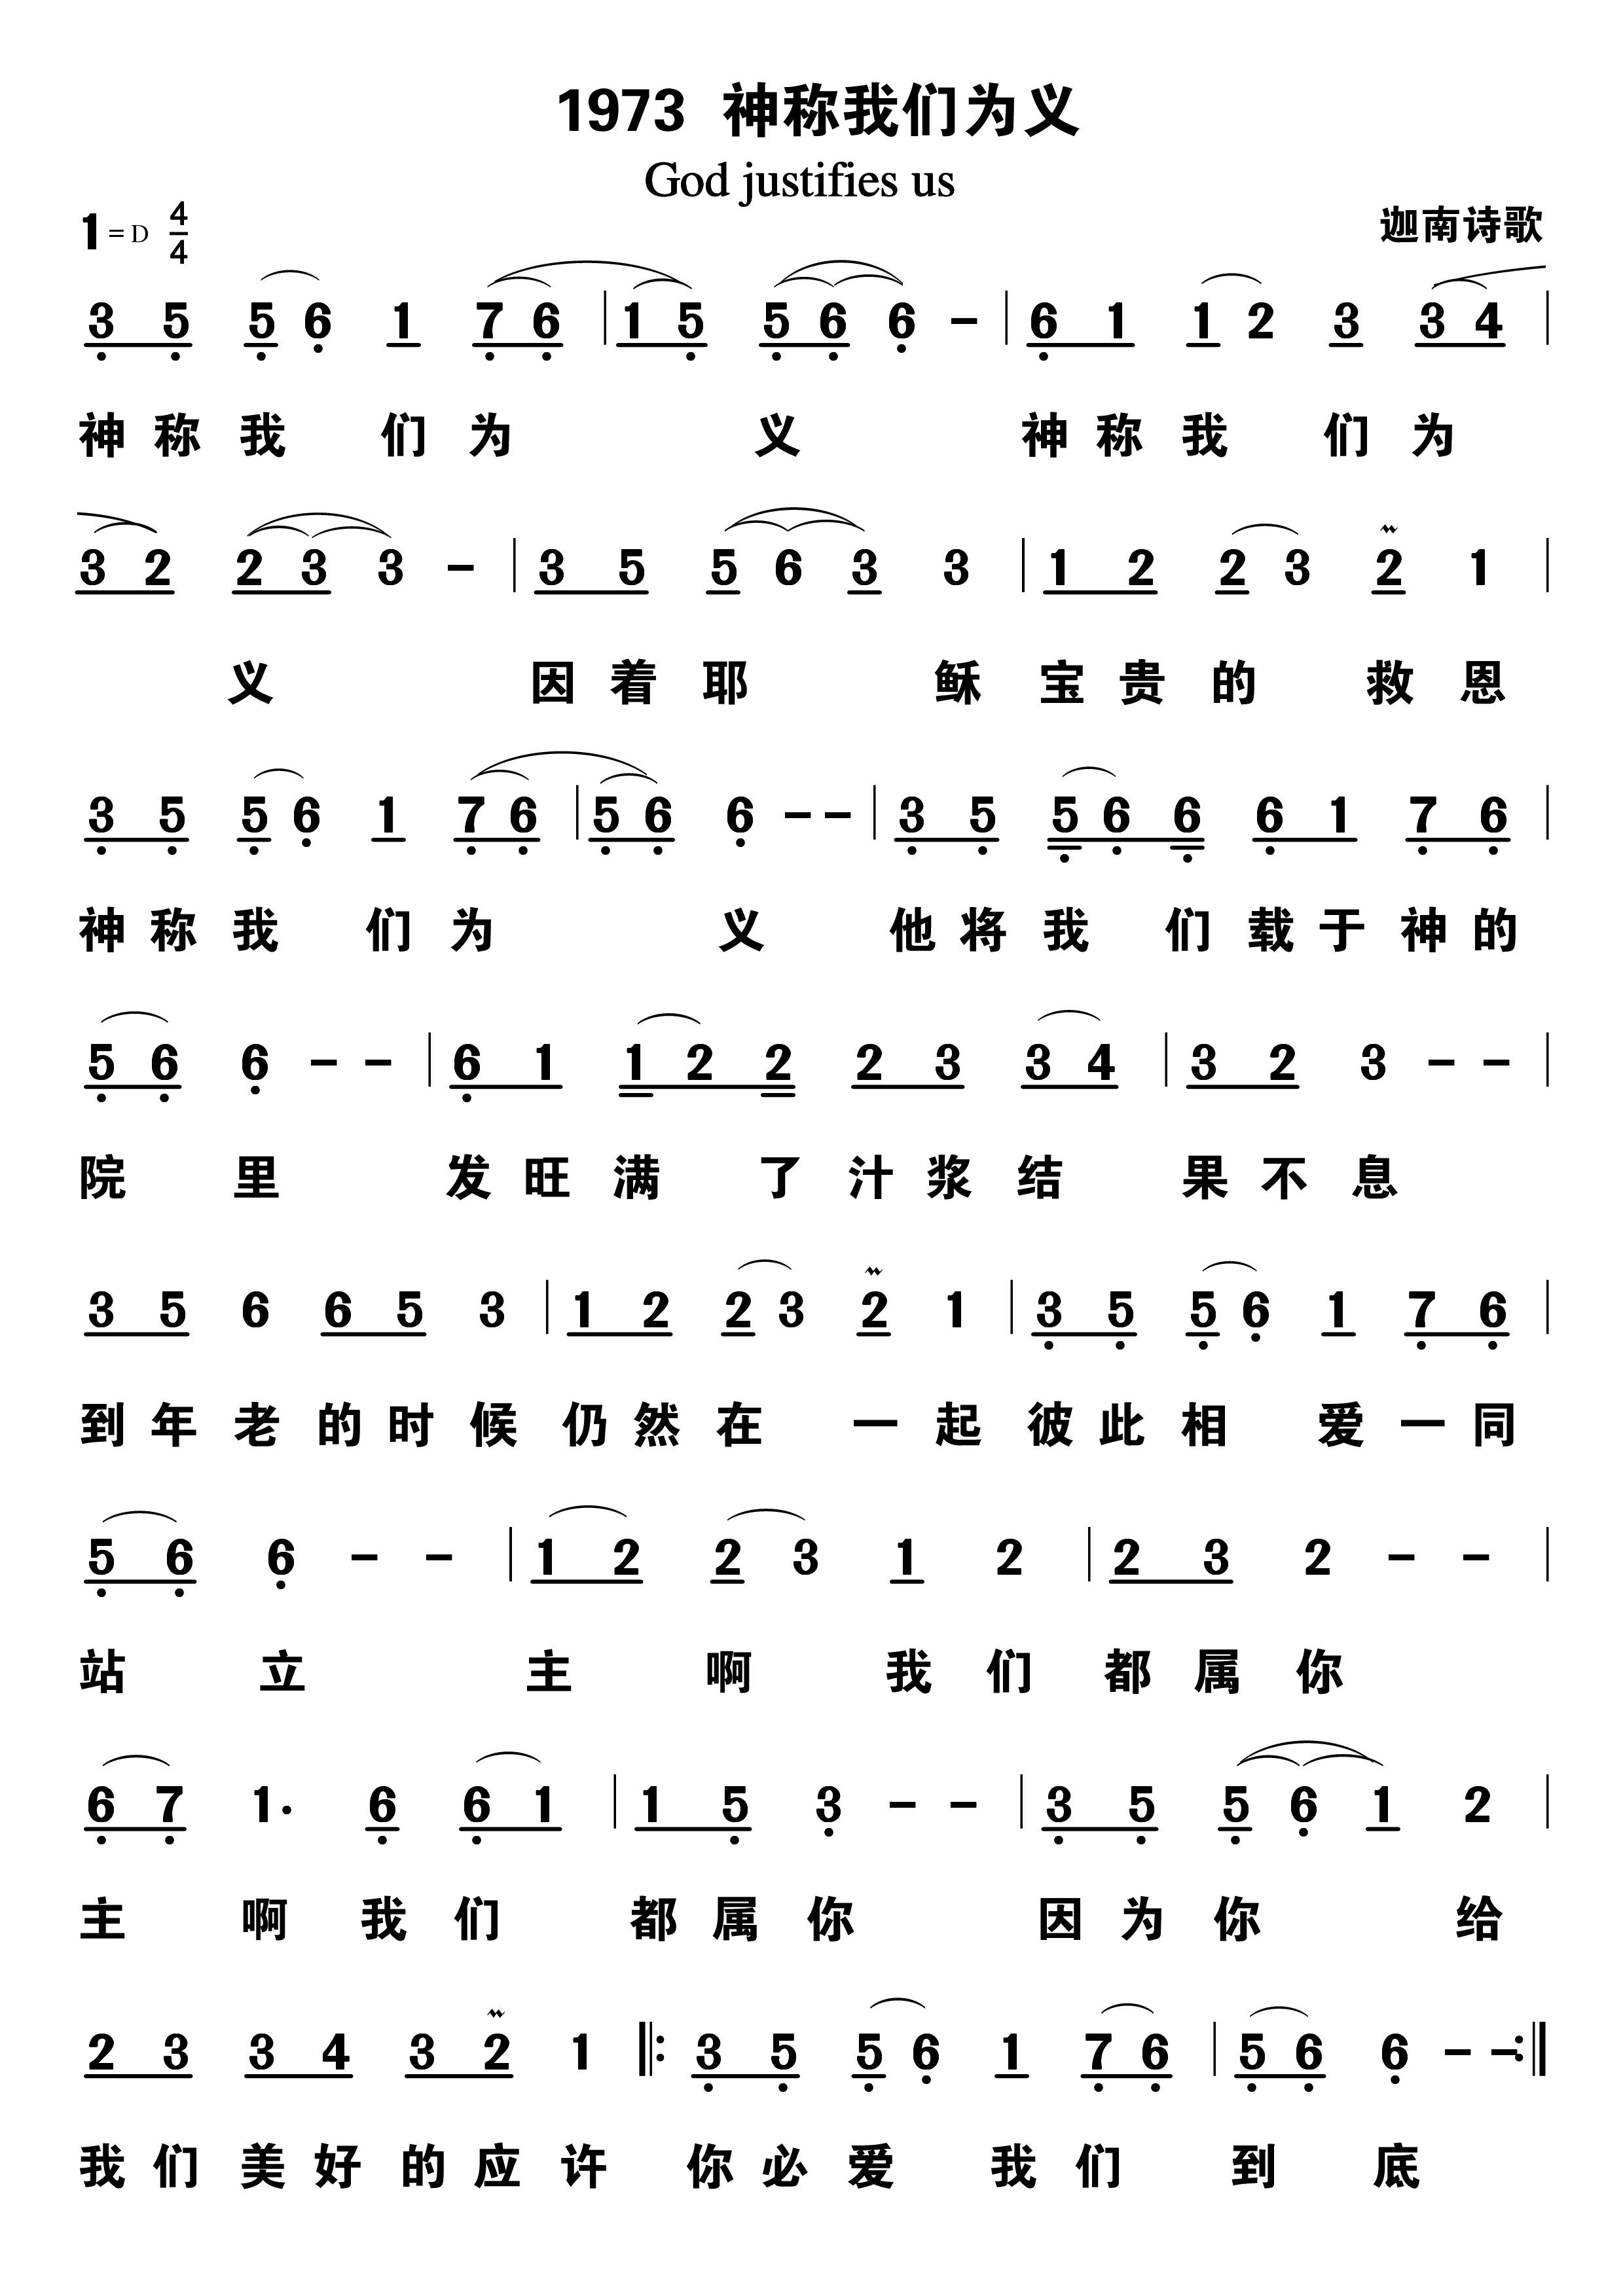 1973 神称我们为义
God justifies us
1=D 4/4
迦南诗歌
3 5 5 6 1 7 6 | 1 5 5 6 6 - | 6 1 1 2 3 3 4 |
神 称 我 们 为 义 神 称 我 们 为
3 2 2 3 3 - | 3 5 5 6 3 3 | 1 2 2 3 2 1 |
义 因 着 耶 稣 宝 贵 的 救 恩
3 5 5 6 1 7 6 | 5 6 6 - - | 3 5 5 6 6 6 1 7 6 |
神 称 我 们 为 义 他 将 我 们 载 于 神 的
5 6 6 - - | 6 1 1 2 2 2 3 3 4 | 3 2 3 - - |
院 里 发 旺 满 了 汁 浆 结 果 不 息
3 5 6 6 5 3 | 1 2 2 3 2 1 | 3 5 5 6 1 7 6 |
到 年 老 的 时 候 仍 然 在 一 起 彼 此 相 爱 一 同
5 6 6 - - | 1 2 2 3 1 2 | 2 3 2 - - |
站 立 主 啊 我 们 都 属 你
6 7 1. 6 6 1 | 1 5 3 - - | 3 5 5 6 1 2 |
主 啊 我 们 都 属 你 因 为 你 给
2 3 3 4 3 2 1 |: 3 5 5 6 1 7 6 | 5 6 6 - - :|
我 们 美 好 的 应 许 你 必 爱 我 们 到 底